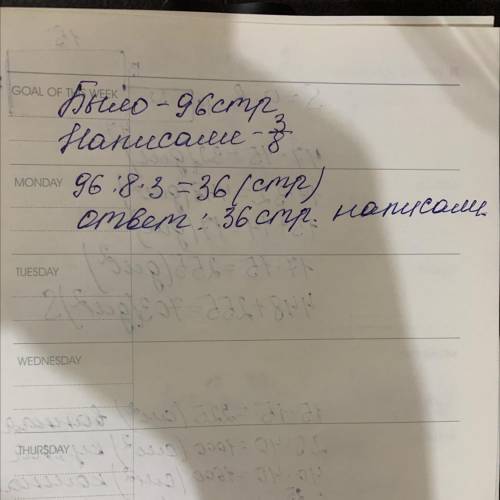 GOAL OF THE WEEK
Было - 96 стр
Написали - 3/8
MONDAY
96 : 8 · 3 = 36 (стр)
ответ : 36 стр. написали.
TUESDAY
WEDNESDAY
THURSDAY